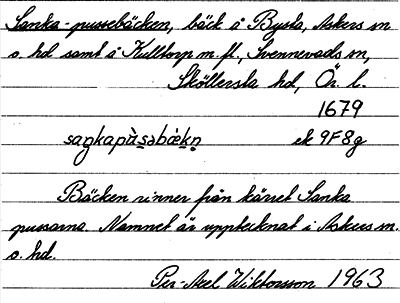 Sanka-pussebäcken, bäck å Bysta, Askers sn
o. hd samt å Kulltorp m. fl., Svennevads sn,
Sköllersta hd, Ör. l.
1679
ek 9F8g
Bäcken rinner från kärret Sanka
pussarna. Namnet är upptecknat i Askers sn.
o. hd.
Per-Axel Wiktorsson 1963